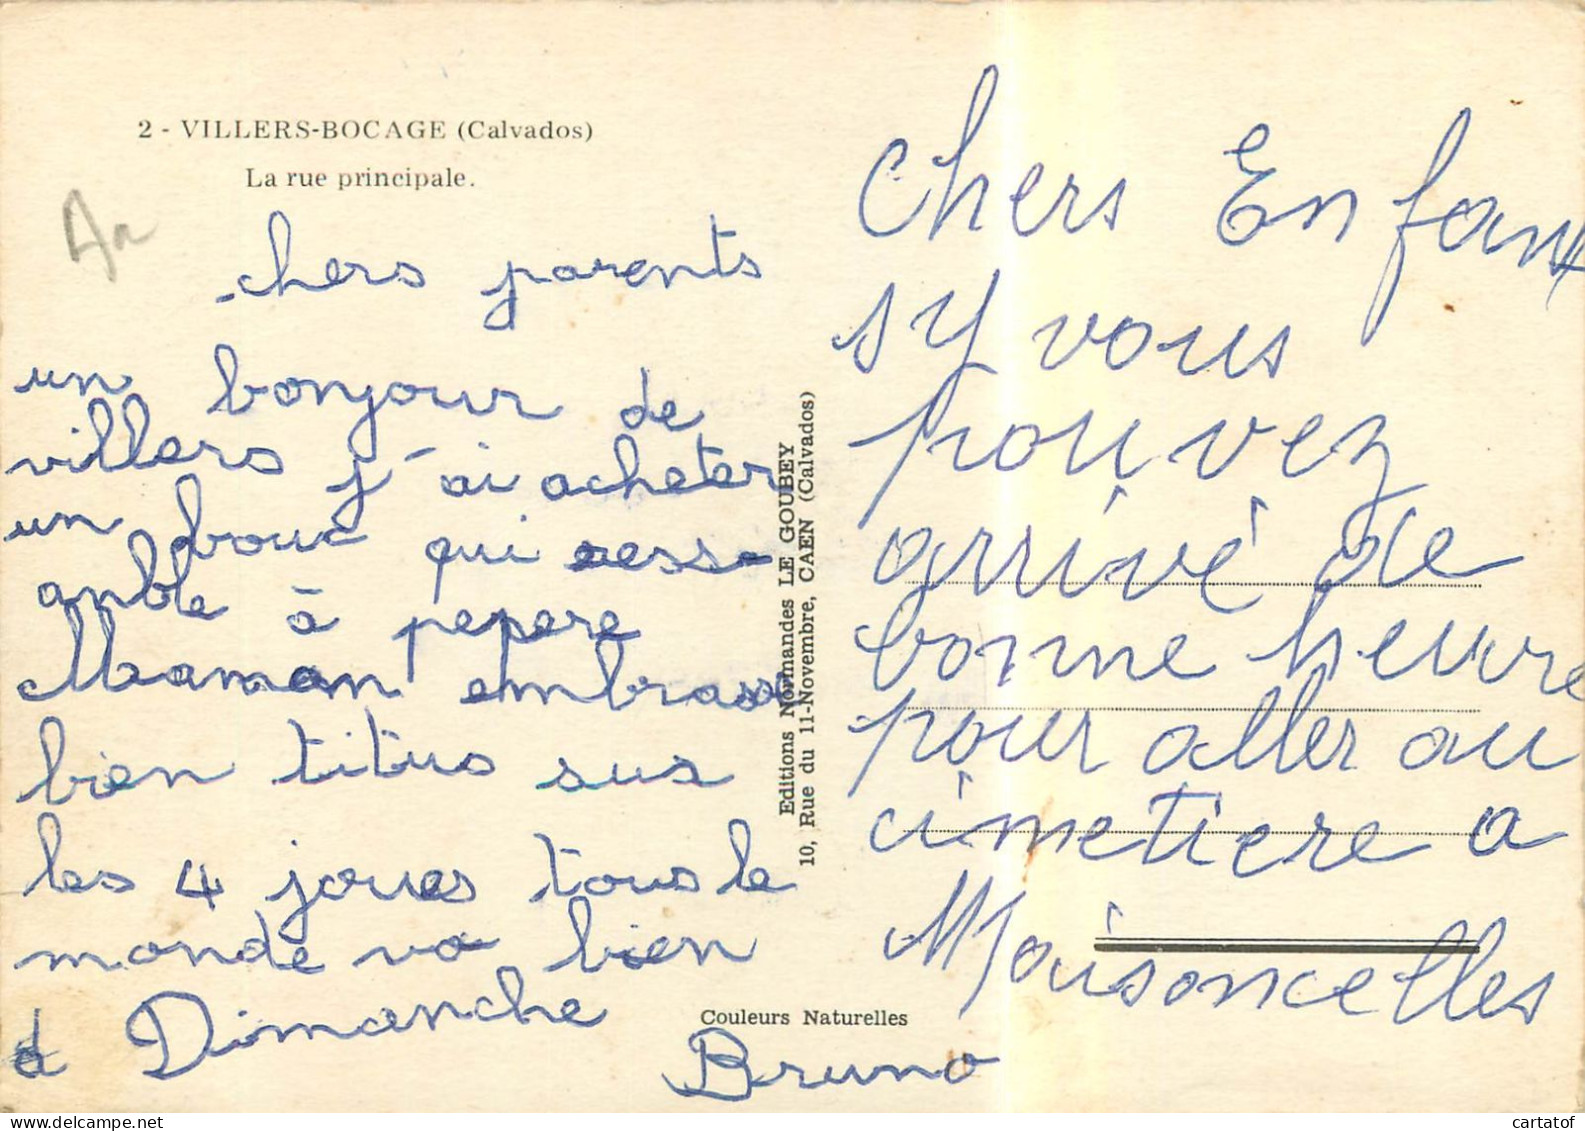 2 - VILLERS-BOCAGE (Calvados)
La rue principale.
An
chers parents
un bonjour de
villers j'ai acheter
un bouc qui ress-
anble à pepere
Maman embrasse
bien titus sus
les 4 joues tous le
monde va bien
a Dimanche
Bruno
Editions Normandes LE GOUBEY
10, Rue du 11-Novembre, CAEN (Calvados)
Couleurs Naturelles
Chers Enfant
s y vous
pouvez
arrivé de
bonne heure
pour aller au
cimetiere a
Maisoncelles
cartatof